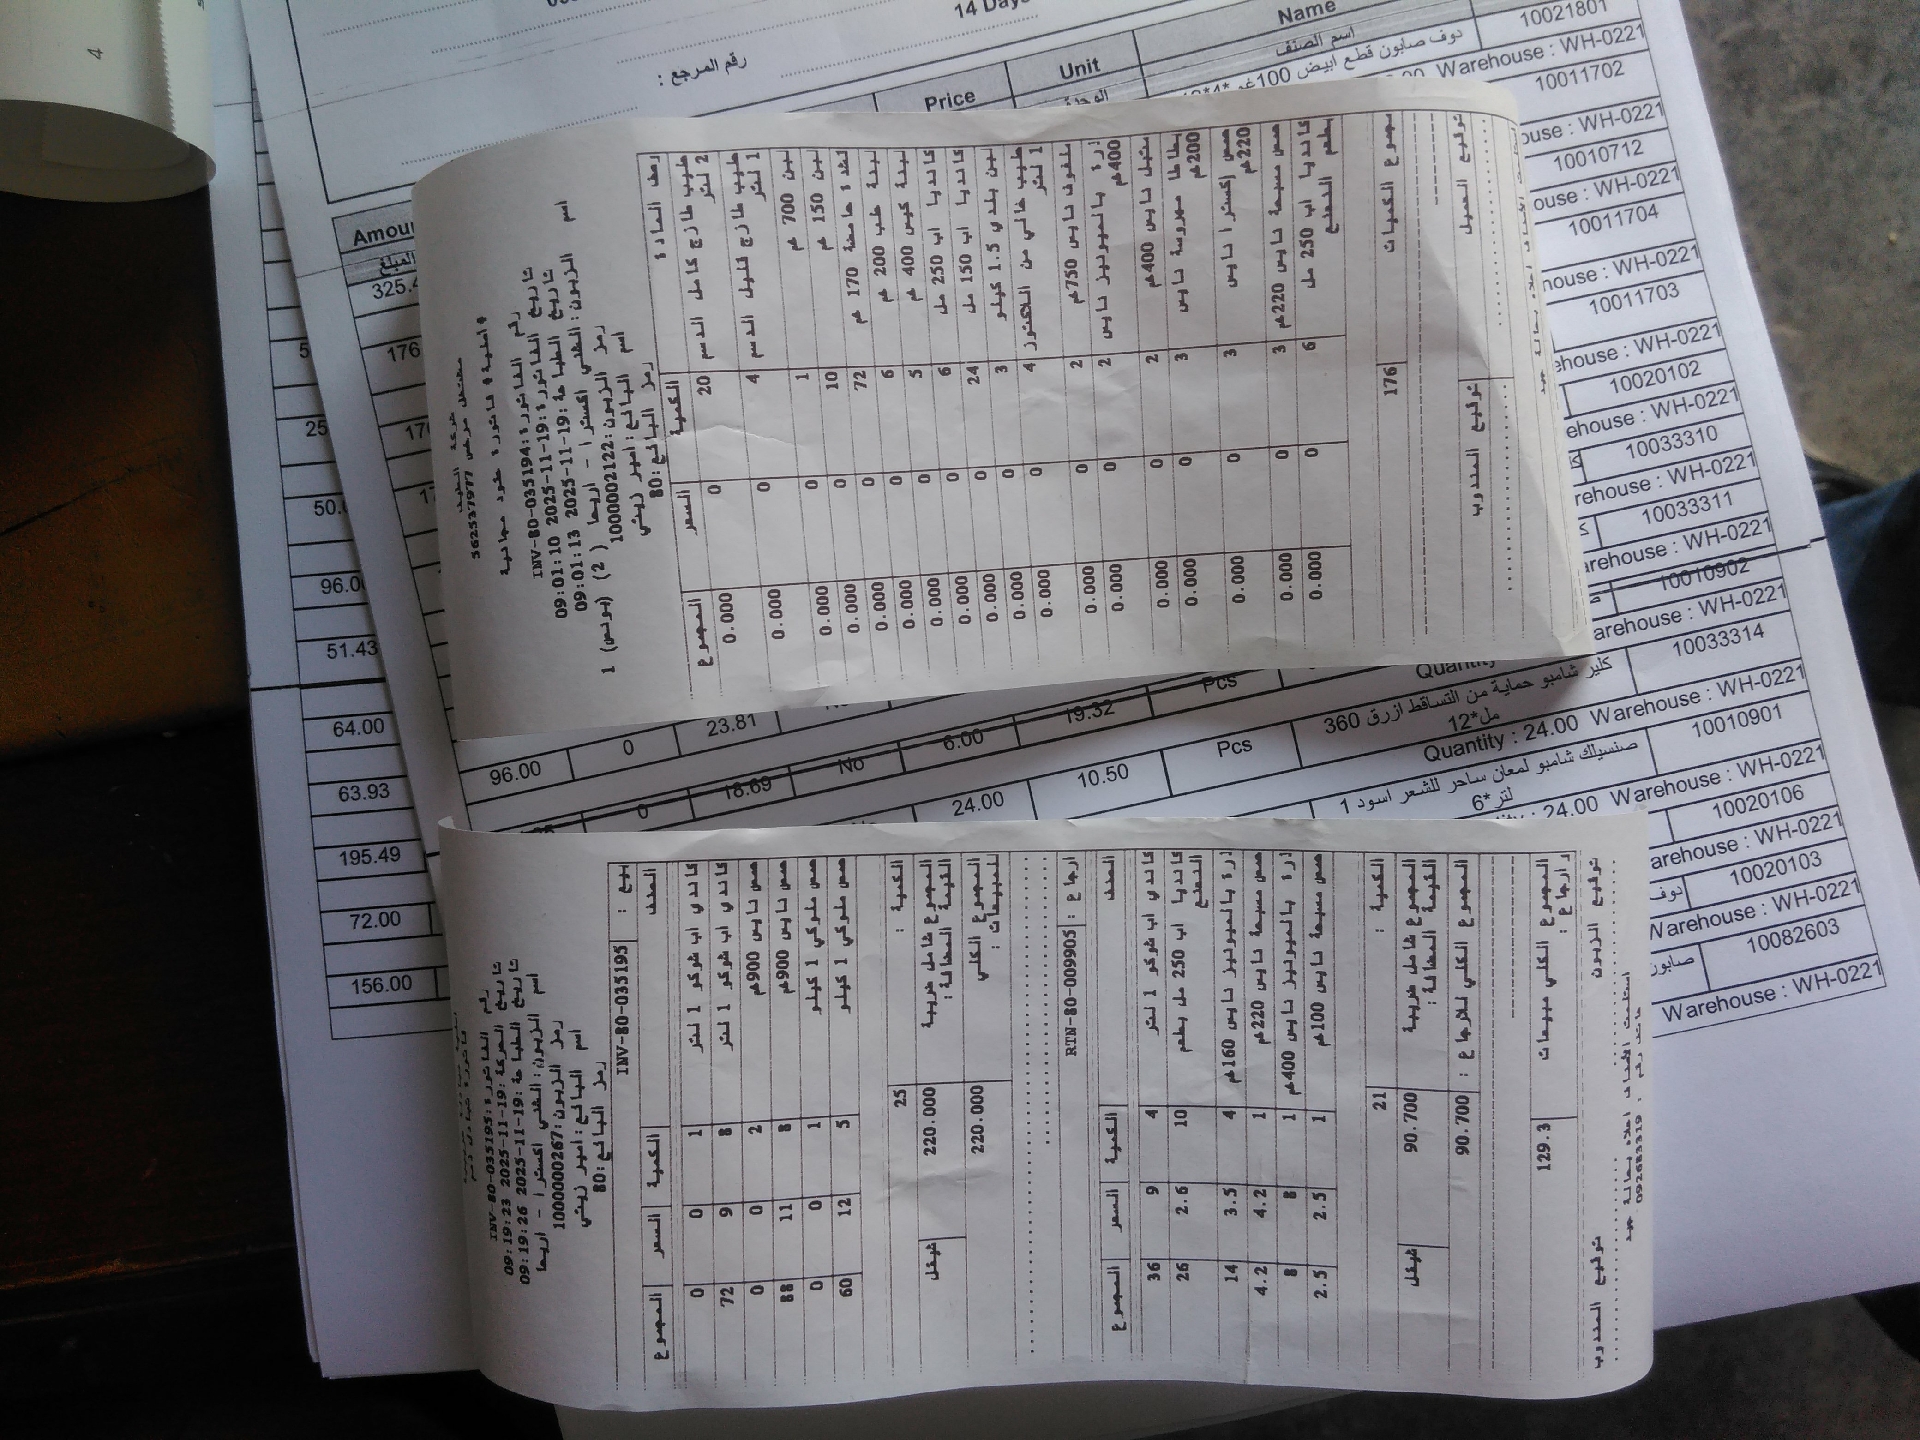 شركة
مشتغل مرخص 562537977
# اصلية # فاتورة عقود مجانية
رقم الفاتورة: INV-80-035194
تاريخ الفاتورة: 2025-11-19 09:01:10
تاريخ الطباعة: 2025-11-19 09:01:13
اسم الزبون: الشني اكسترا - اريحا ( 2 ) (بونص) 1
رمز الزبون: 1000002122
اسم البائع: امير زيتي
رمز البائع: 80
وصف المادة الكمية السعر المجموع
حليب طازج كامل الدسم 2 لتر 20 0 0.000
حليب طازج قليل الدسم 1 لتر 4 0 0.000
لبن 700 غم 1 0 0.000
لبن 150 غم 10 0 0.000
قشدة حامضة 170 غم 72 0 0.000
لبنة علب 200 غم 6 0 0.000
لبنة كيس 400 غم 5 0 0.000
كانديا اب 250 مل 6 0 0.000
كانديا اب 150 مل 24 0 0.000
لبن بلدي 1.5 كيلو 3 0 0.000
حليب خالي من اللاكتوز 1 لتر 4 0 0.000
ملفوف نايس 750غم 2 0 0.000
ذرة بالميونيز نايس 400غم 2 0 0.000
متبل نايس 400غم 2 0 0.000
بطاطا مهروسة نايس 200غم 3 0 0.000
حمص إكسترا نايس 220غم 3 0 0.000
حمص مسبحة نايس 220غم 3 0 0.000
كانديا اب 250 مل بطعم النعنع 6 0 0.000
مجموع الكميات 176
توقيع العميل توقيع المندوب
رقم الفاتورة: INV-80-035195
تاريخ الحركة: 2025-11-19 09:19:23
تاريخ الطباعة: 2025-11-19 09:19:26
اسم الزبون: الشني اكسترا - اريحا
رمز الزبون: 1000000267
اسم البائع: امير زيتي
رمز البائع: 80
بيع : INV-80-035195
الصنف الكمية السعر المجموع
كاندي اب شوكو 1 لتر 1 0 0
كاندي اب شوكو 1 لتر 8 9 72
حمص نايس 900غم 2 0 0
حمص نايس 900غم 8 11 88
حمص ملوكي 1 كيلو 1 0 0
حمص ملوكي 1 كيلو 5 12 60
الكمية : 25
المجموع شامل ضريبة القيمة المضافة : 220.000 شيقل
المجموع الكلي للمبيعات : 220.000
ارجاع : RTN-80-009905
الصنف الكمية السعر المجموع
كاندي اب شوكو 1 لتر 4 9 36
كانديا اب 250 مل بطعم النعنع 10 2.6 26
ذرة بالميونيز نايس 160غم 4 3.5 14
حمص مسبحة نايس 220غم 1 4.2 4.2
ذرة بالميونيز نايس 400غم 1 8 8
حمص مسبحة نايس 100غم 1 2.5 2.5
الكمية : 21
المجموع شامل ضريبة القيمة المضافة : 90.700 شيقل
المجموع الكلي للارجاع : 90.700
المجموع الكلي مبيعات وارجاع : 129.3
توقيع الزبون توقيع المندوب
استلمت الاصناف اعلاه بحالة جيدة
هاتف رقم : 092683319
14 Days
رقم المرجع :
Name Unit Price
اسم الصنف
10021801
دوف صابون قطع ابيض 100غم
Warehouse : WH-0221
10011702
WH-0221
10010712
WH-0221
10011704
WH-0221
10011703
WH-0221
10020102
WH-0221
10033310
WH-0221
10033311
WH-0221
10010902
WH-0221
10033314
كلير شامبو حماية من التساقط ازرق 360 مل*12
Quantity : 24.00 Warehouse : WH-0221
10010901
صنسيلك شامبو لمعان ساحر للشعر اسود 1 لتر *6
24.00 Warehouse : WH-0221
10020106
WH-0221
10020103
دوف
Warehouse : WH-0221
10082603
صابون
Warehouse : WH-0221
96.00 0 23.81
0 18.69 No 6.00 19.32 Pcs
24.00 10.50 Pcs
51.43
64.00
63.93
195.49
72.00
156.00
4